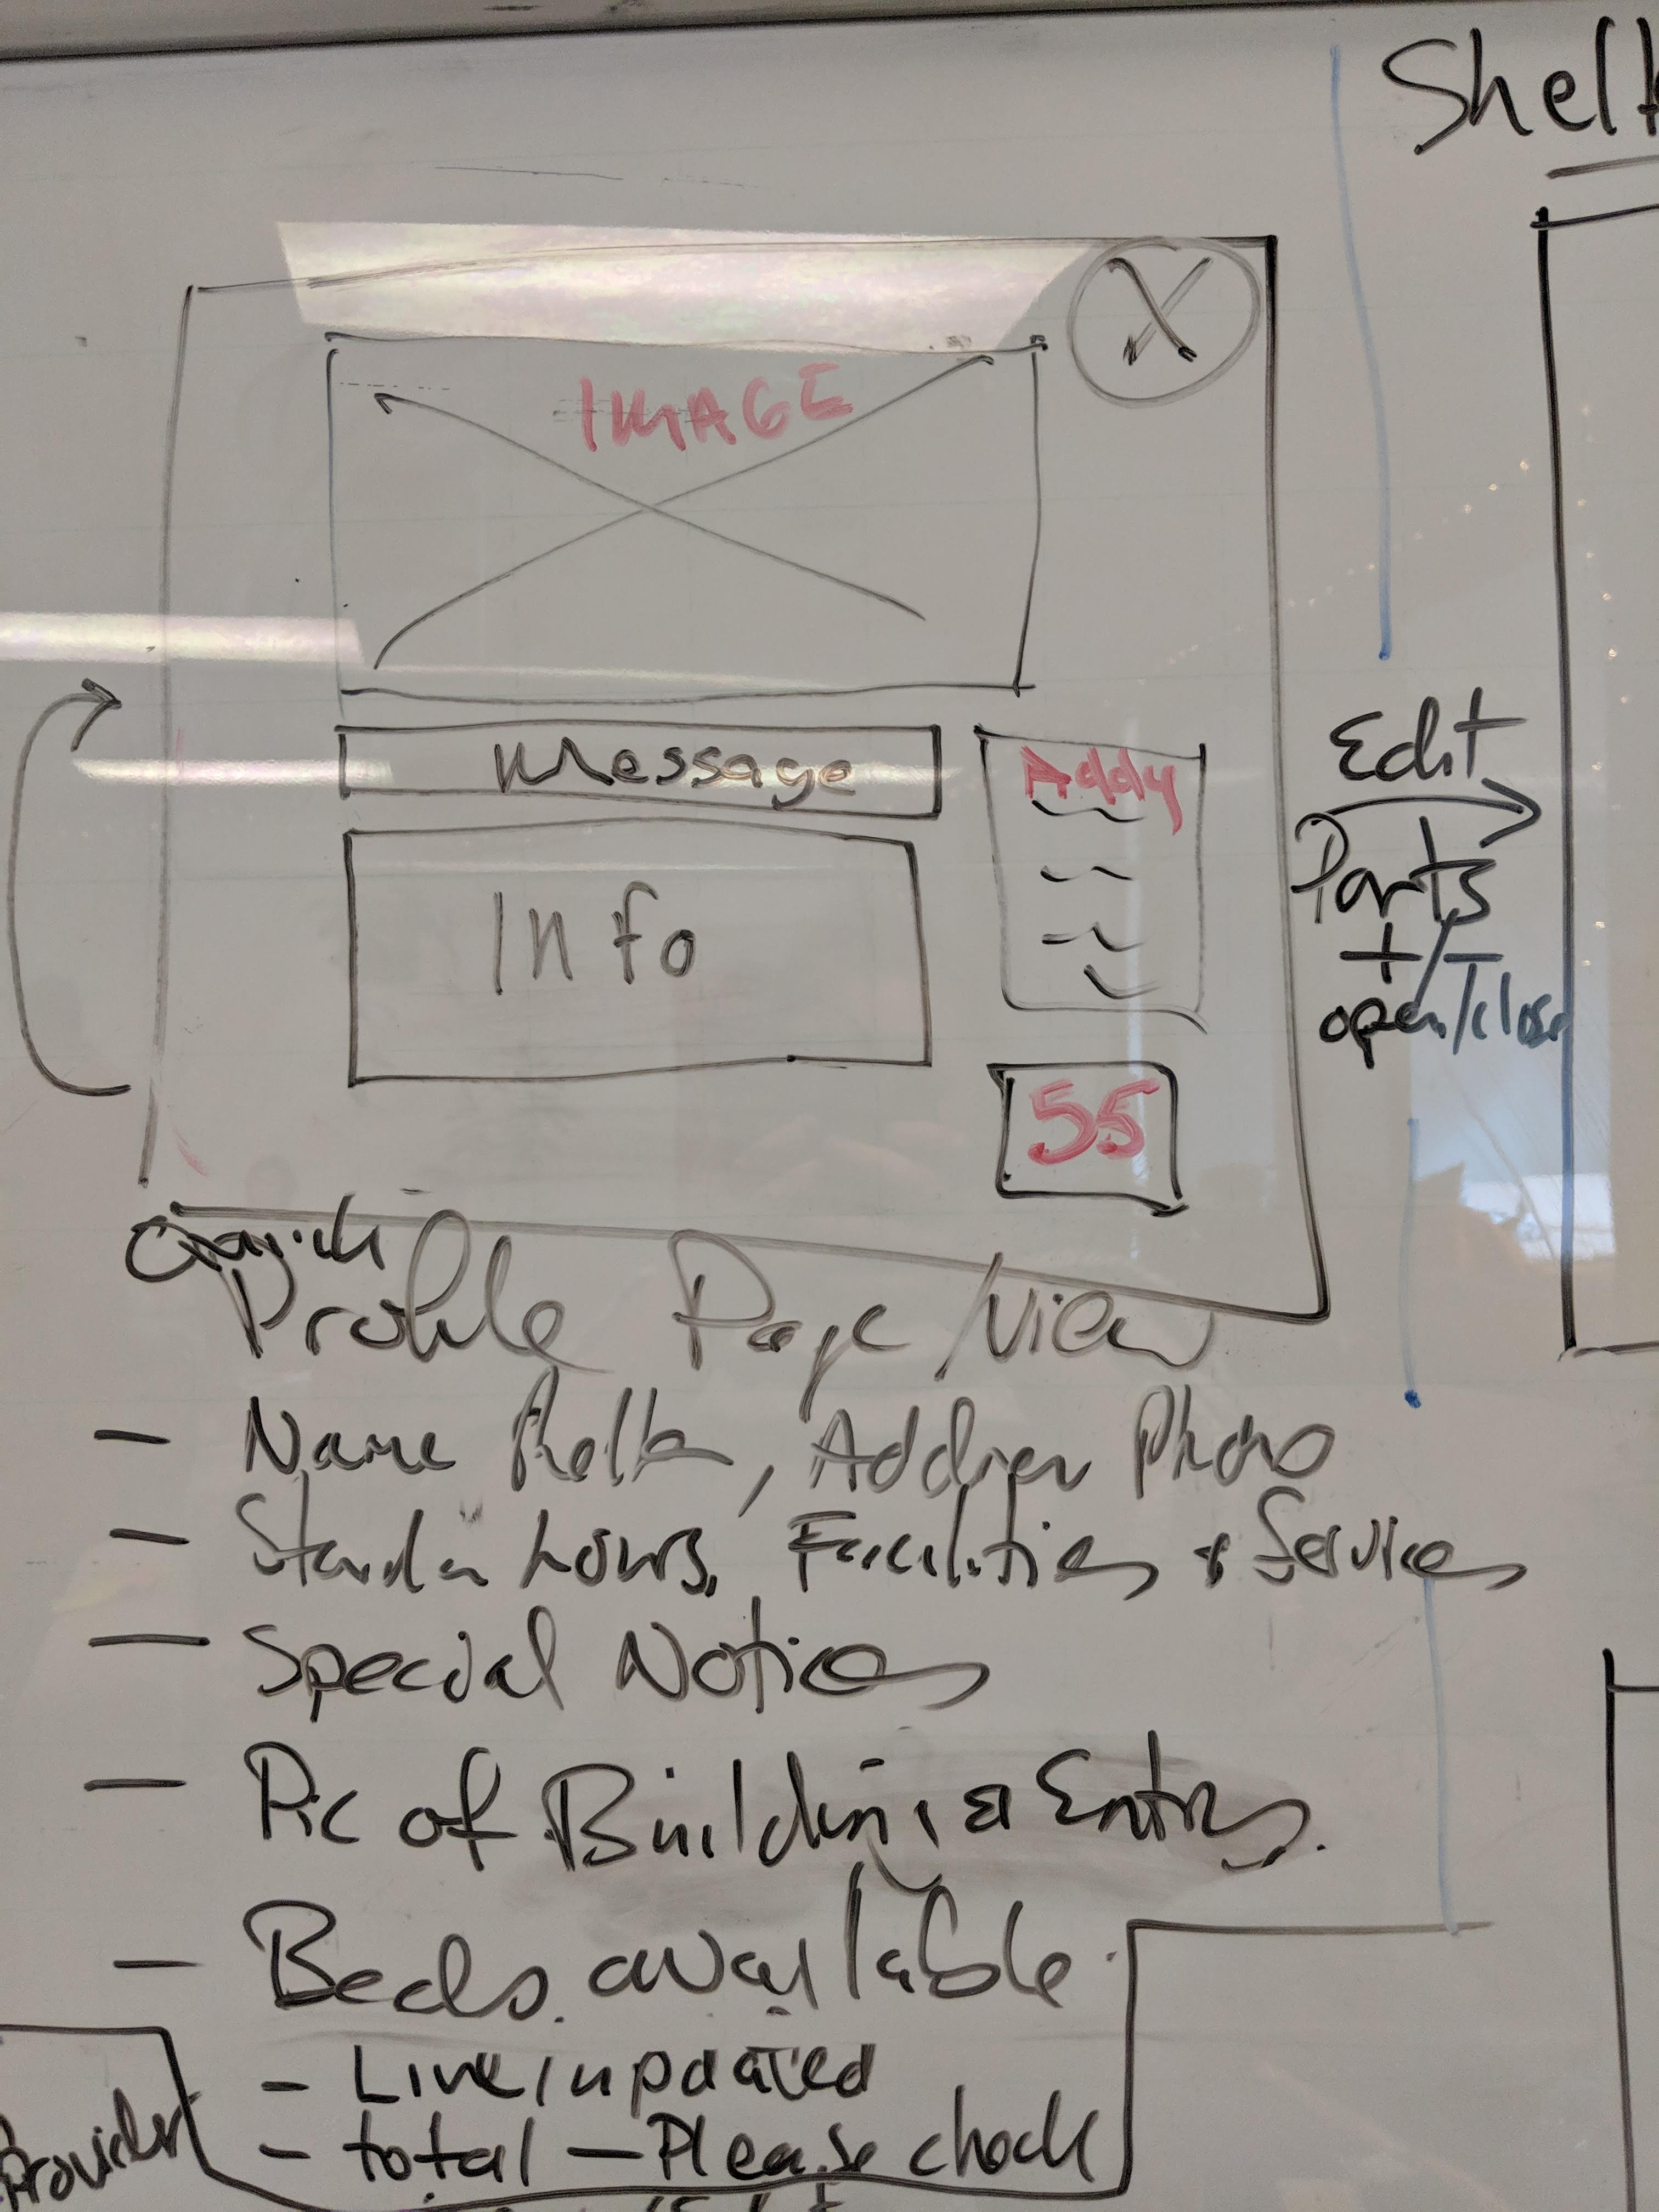 Shelt
X
IMAGE
Message
Addy
Info
55
Edit
Parts
+/-
open/close
Quick
Profile Page/View
- Name, Address Phone
- hours, Facilities & Services
- Special Notices
- Pic of Building & Entry.
- Beds available
- Live/updated
- total - Please check
Provider